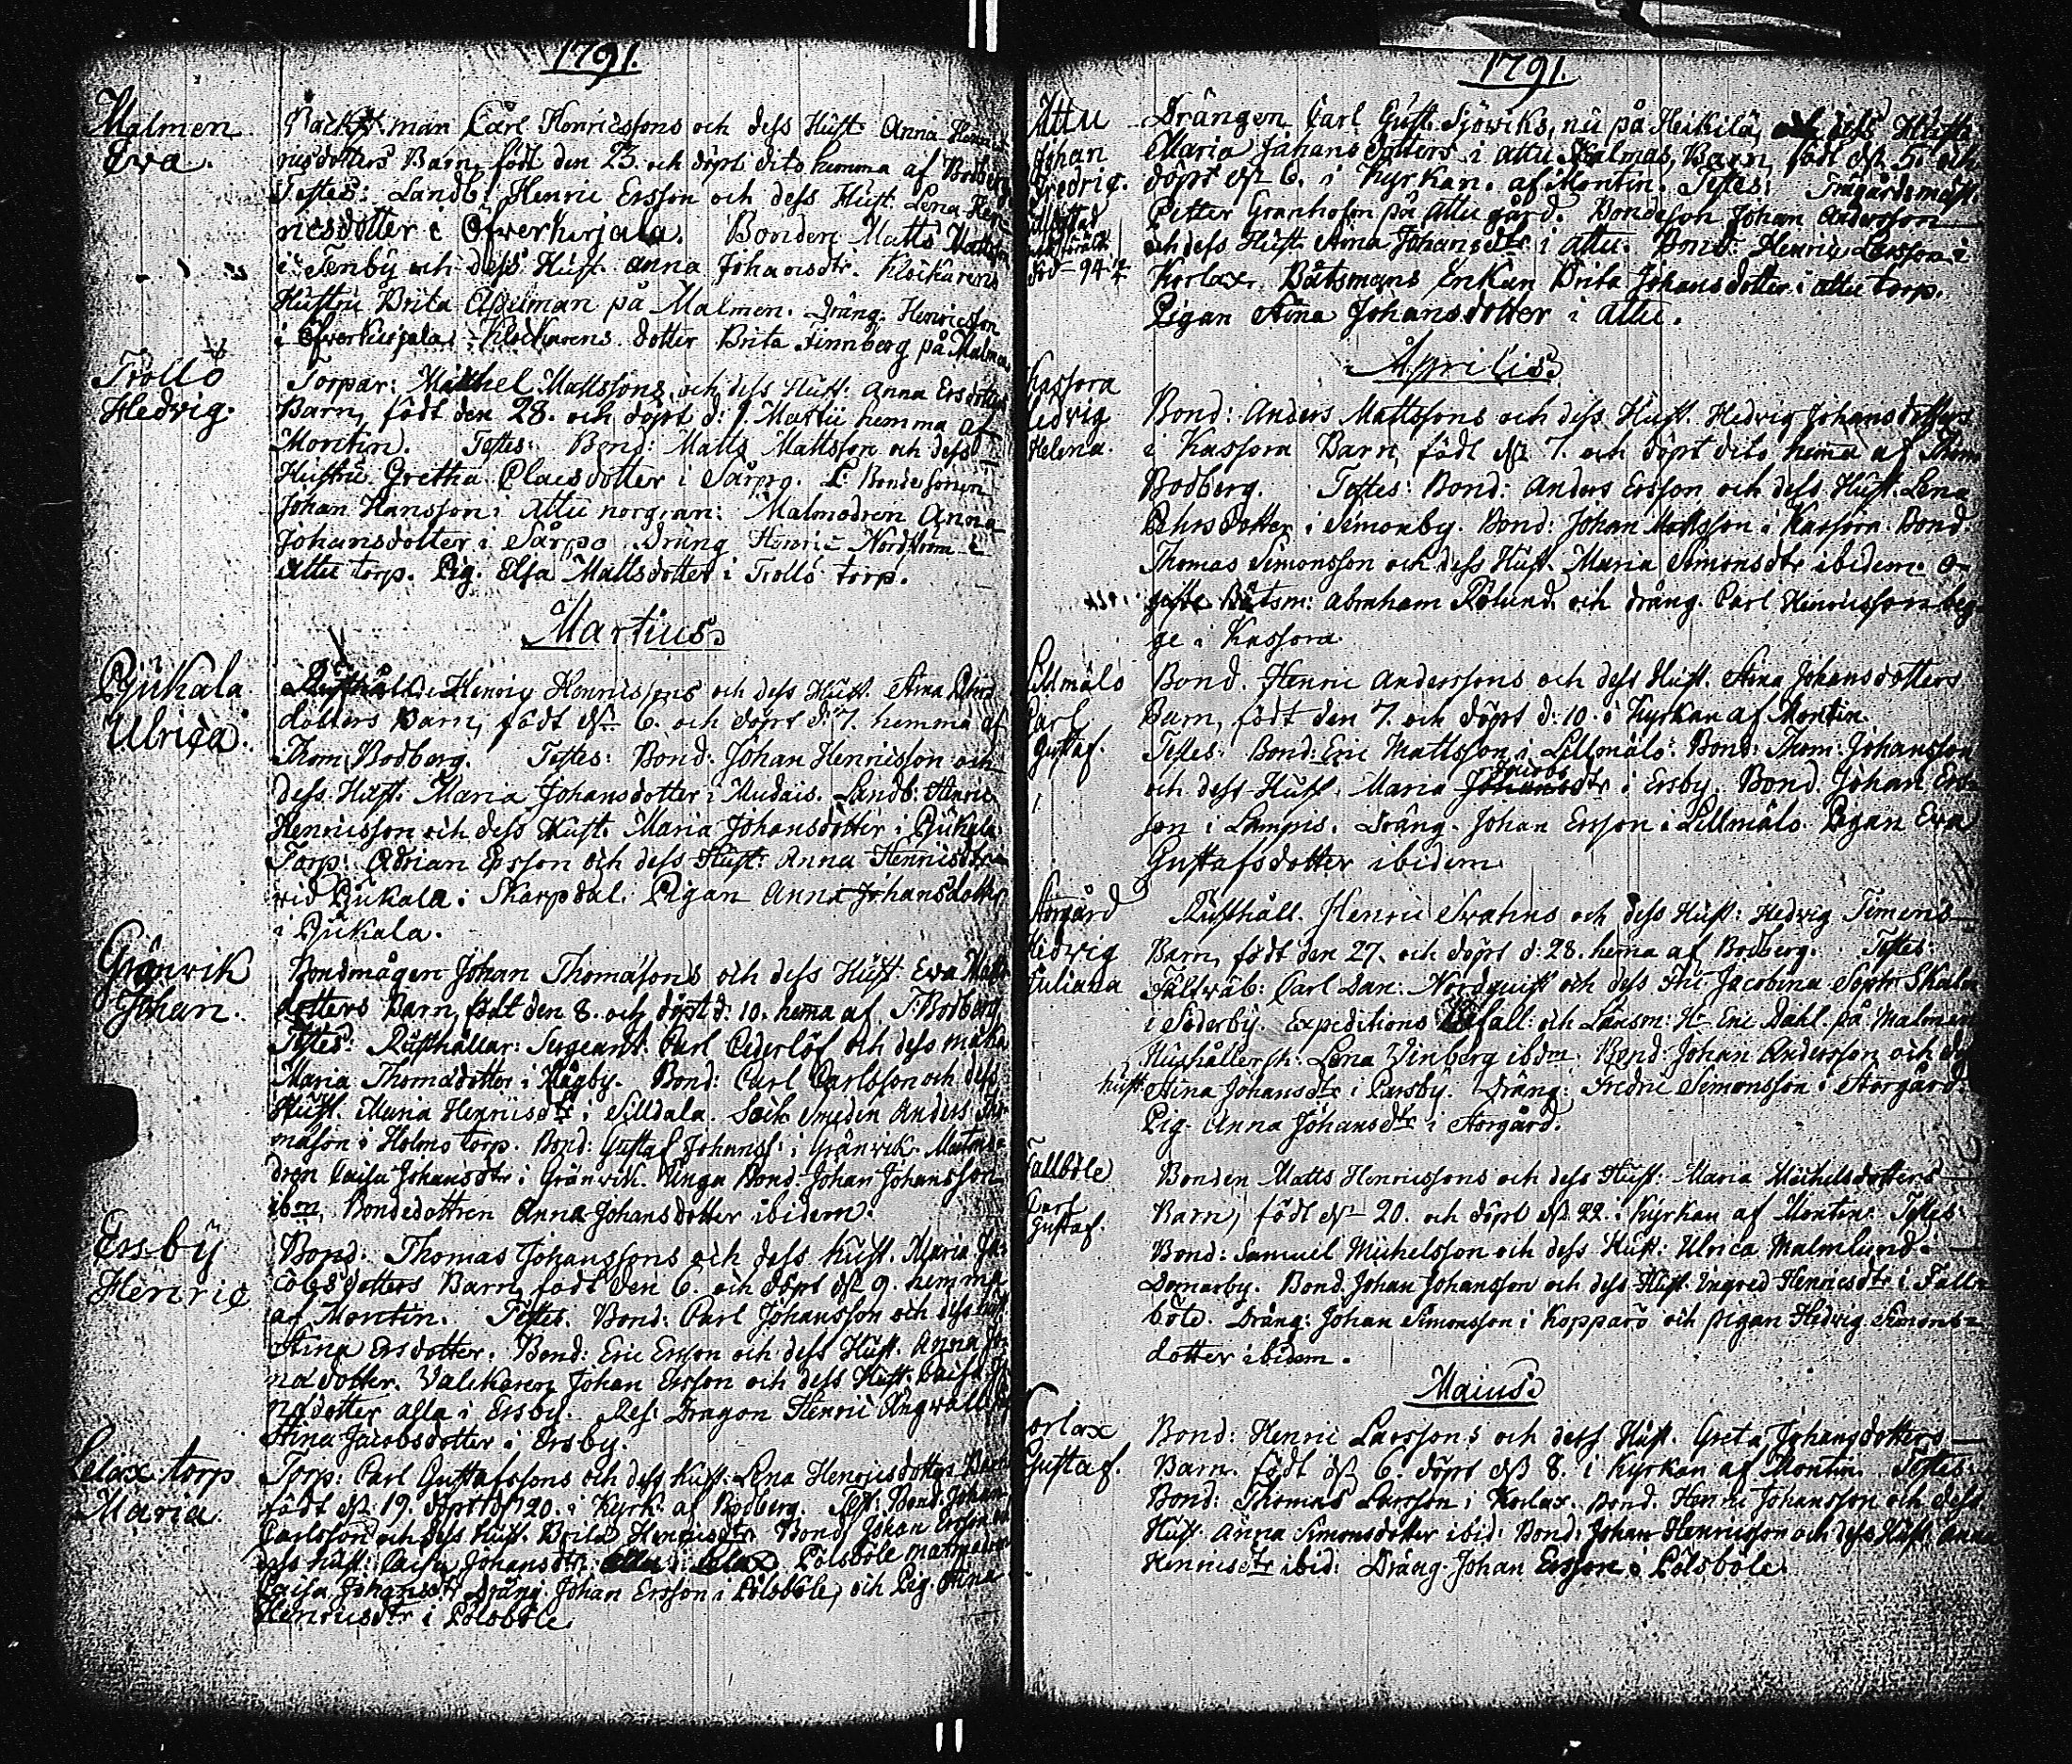 1791.
Malmen
Eva.
man Carl Henricssons och dess Hust. Anna Hen
ricsdotters Barn, född den 23. och döpt dito hemma af Bodberg
Testes: Landb: Henric Ersson och dess Hust. Lena Hen
ricsdotter i Öfverkirjala. Bonden Matts Matts
i Tenby och dess Hust. Anna Johansdtr. Klockarens
Hustru Brita Apelman på Malmen. Dräng. Henricsson
i Öfverkirjala. Klockarens dotter Brita Finnberg på Malmen
Trollö
Hedvig.
Torpar: Michel Mattssons och dess Hust. Anna Ersdotters
Barn, född den 28. och döpt d: 1. Martii hemma af
Montin. Testes: Bond: Matts Mattsson och dess
Hustru Gretha Claesdotter i Särpo. Bondesonen
Johan Hansson i Attu norgran: Malmodren Anna
Johansdotter i Särpo. Dräng Henric Nordstrom i
Attu torp. Pig. Elsa Mattsdotter i Trollö torp.
Martius
Pjukala
Ulrica.
Rusthåll: Henric Henricssons och dess Hust. Stina
dotters Barn, född d. 6. och döpt d: 7. hemma af
Thom Bodberg. Testes: Bond: Johan Henricsson och
dess Hust: Maria Johansdotter i Mudais. Landb: Henric
Henricsson och dess Hust. Maria Johansdotter i Pjukala
Torp: Adrian Ersson och dess Hust: Anna Henricsdtr
vid Pjukala i Skarpdal. Pigan Anna Johansdotter
i Pjukala.
Gränvik
Johan.
Bondmågen Johan Thomasons och dess Hust. Eva Matts
dotters Barn, född den 8. och döpt d: 10. hema af T. Bodberg
Testes: Rusthållar: Sergeant: Carl Cederlöf och dess maka
Maria Thomadotter i Mågby. Bond: Carl Carlsson och dess
Hust. Maria Henricsdtr i Silldala. Sock Smeden Anders Tho
mason i Holms torp. Bond: Gustaf Johanss: i Gränvik. Matmo
dren Caisa Johansdtr i Gränvik. Unga Bond. Johan Johansson
ibm, Bondedottren Anna Johansdotter ibidem.
Ersby
Henric
Bond. Thomas Johanssons och dess hust. Maria Ja
cobsdotters Barn, född den 6. och döpt d. 9. hemma
af Montin. Testes. Bond: Carl Johansson och dess hust
Stina Ersdotter. Bond: Eric Ersson och dess Hust. Anna Jo
nadotter. Valckaren Johan Ersson och dess Hust. Caisa
nsdotter alla i Ersby. Res: Dragon Henric Ångwall
Stina Jacobsdotter i Ersby.
Lelax torp
Maria.
Torp: Carl Gustafssons och dess hust. Lena Henricsdotters Barn
född d. 19. döpt d. 20. i Kyrk. af Bodberg. Test: Bond: Johan
Carlsson och dess hust. Brita Henricsdtr Bond Johan Ersson
dess hust: Caisa Johansdtr. Pölsböle matmodren
Caisa Johansdtr Dräng. Johan Ersson i Pölsböle, och Pig. Stina
Henricsdtr i Pölsböle.
1791.
Attu
Johan
Fredric.
Drängen Carl Gust. Sjöwiks, nu på Heikilä, och dess Hust.
Maria Johansdotters i Attu Kalmas, Barn, född d. 5. och
döpt d. 6. i Kyrkan. af Montin. Testes: Trägårdsmäst.
Petter Granholm på Attu gård. Bondeson Johan Andersson
och dess Hust. Stina Johansdtr i Attu. Bond: Henric Larsson i
Korlax. Båtsmans Enkan Brita Johansdotter i Attu torp.
Pigan Stina Johansdotter i Attu.
Aprilis
Kassora
Hedvig
Helena.
Bond: Anders Mattssons och dess Hust. Hedvig Johansdotters
i Kassora Barn, född d. 7. och döpt dito hema af Thom
Bodberg. Testes: Bond: Anders Ersson och dess Hust. Lena
Ehrsdotter i Simonby. Bond: Johan Mattsson i Kassora. Bond
Thomas Simonsson och dess Hust. Maria Simonsdtr ibidem. O-
gifte Båtsm: Abraham Rolund och dräng. Carl Henricsson beg
ge i Kassora.
Lillmälö
Carl
Gustaf.
Bond. Henric Anderssons och dess Hust. Stina Johansdotters
Barn, född den 7. och döpt d: 10. i Kyrkan af Montin.
Testes. Bond: Eric Mattsson i Lillmälö. Bond: Thom: Johansson
och dess Hust. Maria Jacobsdtr i Ersby. Bond. Johan Ers
son i Lampis. Dräng. Johan Ersson i Lillmälö. Pigan Eva
Gustafsdotter ibidem.
Storgård
Hedvig
Juliana
Rusthåll. Henric Svahns och dess Hust: Hedvig Simens
Barn, född den 27. och döpt d: 28. hema af Bodberg. Testes:
Fältwäb: Carl Dan: Nordquist och dess Fru Jacobina Soph: Skalm
i Söderby. Expeditions Befall: och Länsm: Hr Eric Dahl. på Malmen
Hushållersk: Lena Winberg ibdm. Bond: Johan Andersson och dess
hust. Stina Johansdtr i Parsby. Dräng: Fredric Simonsson i Storgård.
Pig. Anna Johansdtr i Storgård.
Fallböle
Carl
Gustaf.
Bonden Matts Henricssons och dess Hust: Maria Michelsdotters
Barn, född d. 20. och döpt d. 22. i Kyrkan af Montin. Testes:
Bond: Samuel Michelsson och dess Hust: Ulrica Malmlund i
Domarby. Bond. Johan Johansson och dess Hust. Ingred Henricsdtr i Fall
böle. Dräng: Johan Simonsson i Kopparö och pigan Hedvig Simons-
dotter ibidem.
Maius
Korlax
Gustaf.
Bond: Henric Larssons och dess Hust. Greta Johansdotters
Barn. född d. 6. döpt d. 8. i Kyrkan af Montin. Testes:
Bond: Thomas Larsson i Korlax. Bond. Henric Johansson och dess
Hust. Anna Simonsdotter ibid: Bond: Johan Henricsson och dess Hust: Anna
Henricsdtr ibid: Dräng. Johan Ersson i Pölsböle.